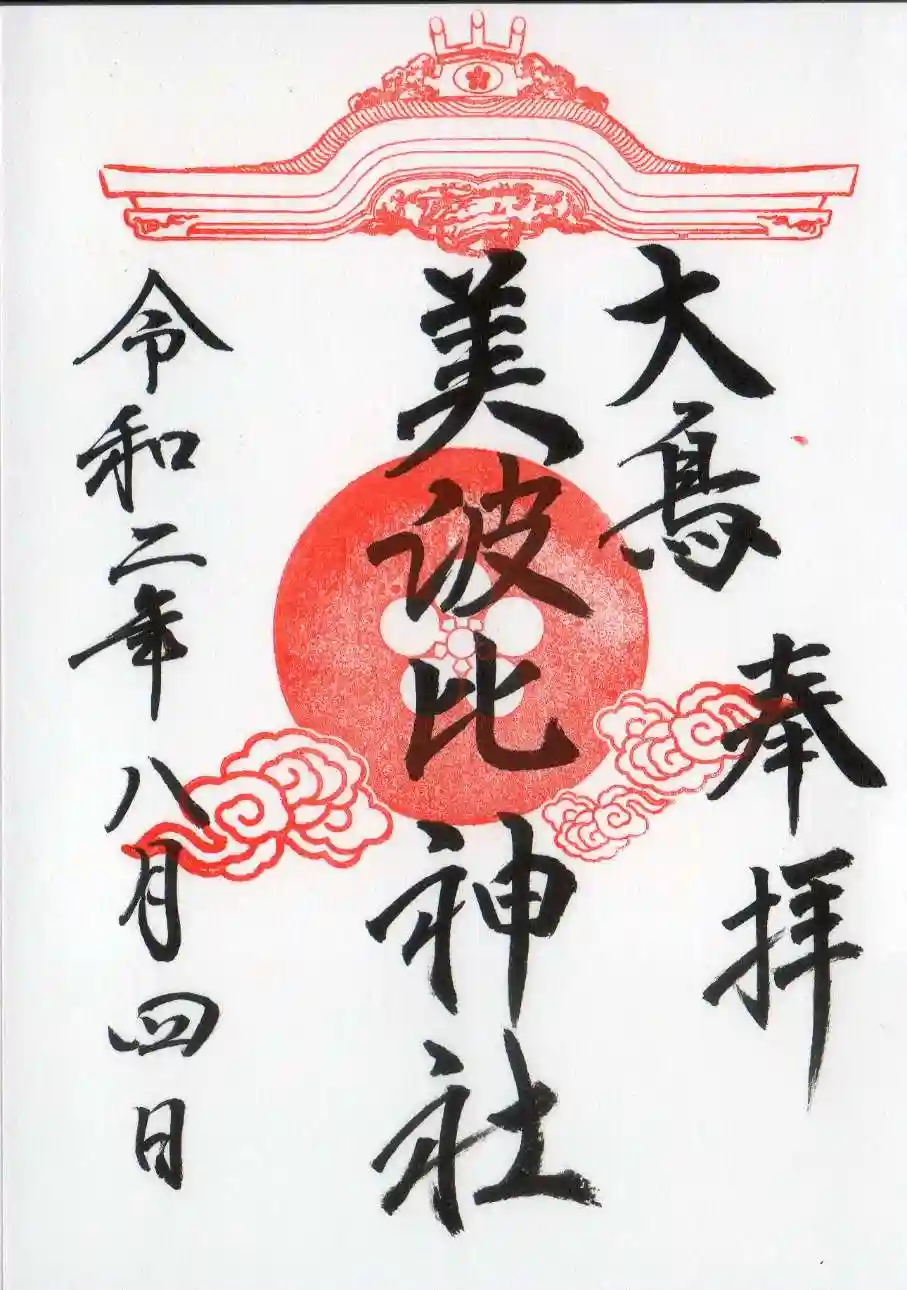 奉拝
大鳥
美波比神社
令和二年八月四日